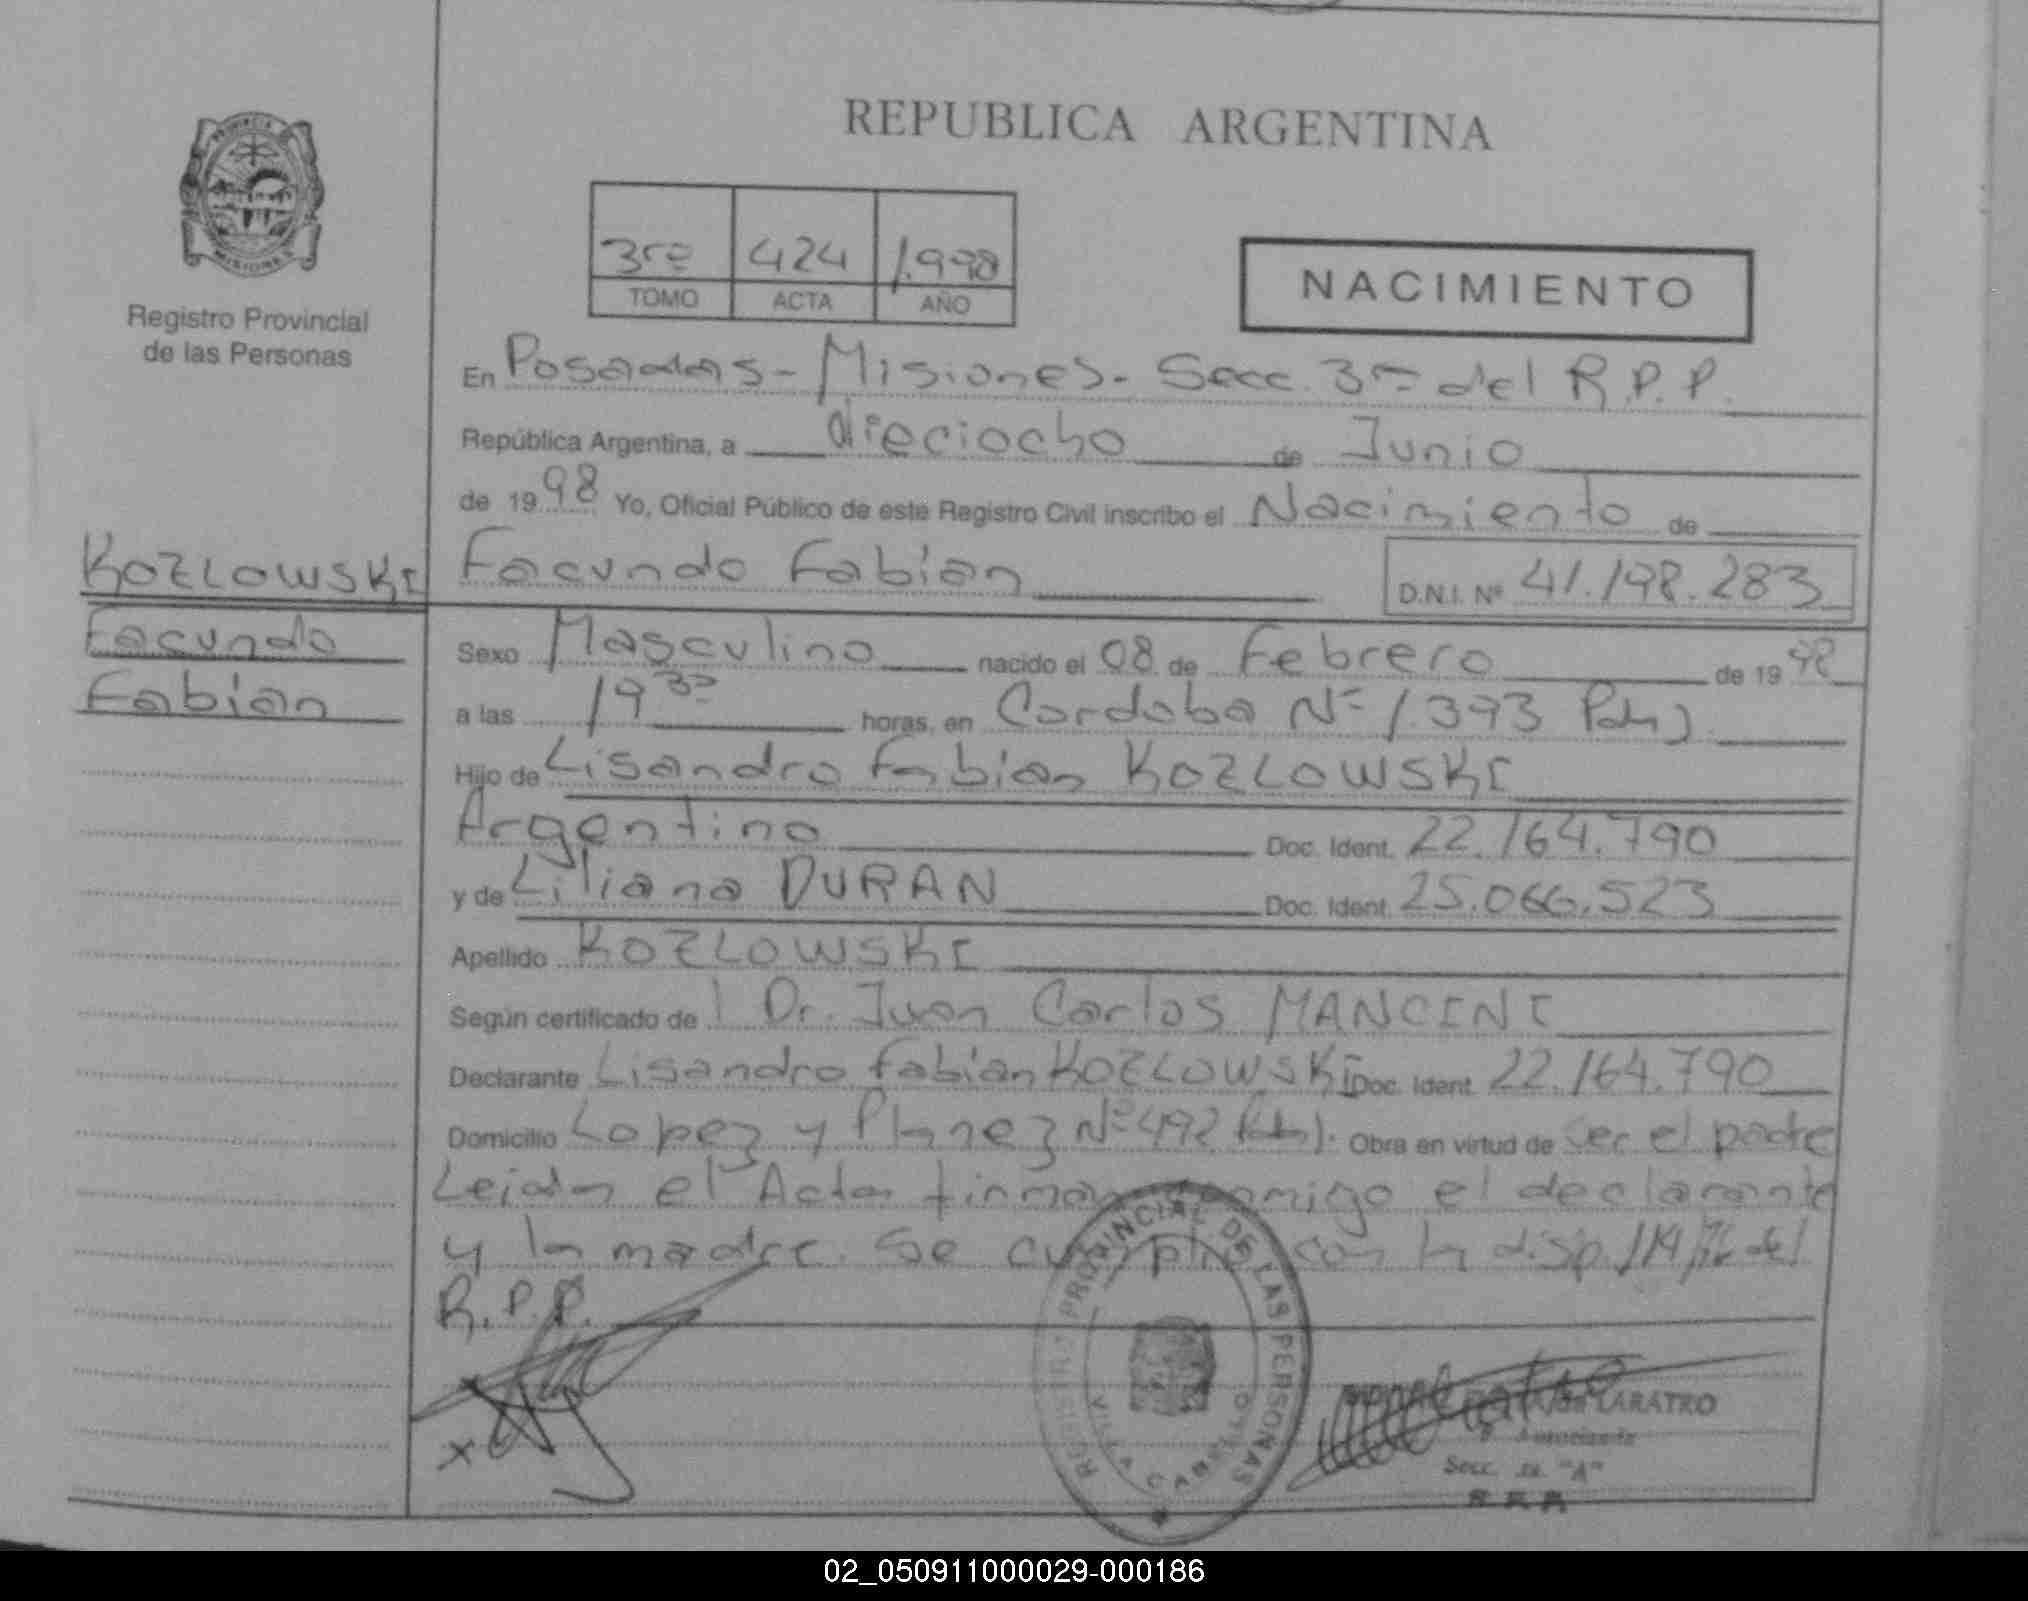 REPUBLICA ARGENTINA
PROVINCIA
MISIONES
Registro Provincial
de las Personas
3ra 424 1.998
TOMO ACTA AÑO
NACIMIENTO
En Posadas - Misiones - Secc. 3ra del R.P.P.
República Argentina, a dieciocho de Junio
de 1998 Yo, Oficial Público de este Registro Civil inscribo el Nacimiento de
KOZLOWSKI
Facundo
Fabian
Facundo Fabian D.N.I. Nº 41.198.283
Sexo Masculino nacido el 08 de Febrero de 1998
a las 19 30 horas, en Cordoba Nº 1.393 Pdas
Hijo de Lisandro Fabian KOZLOWSKI
Argentino Doc. Ident. 22.164.790
y de Liliana DURAN Doc. Ident. 25.066.523
Apellido KOZLOWSKI
Según certificado de l Dr. Juan Carlos MANCINI
Declarante Lisandro Fabian KOZLOWSKI Doc. Ident. 22.164.790
Domicilio Lopez y Planez Nº 492 Pdas. Obra en virtud de ser el padre
Leida el Acta firman conmigo el declarante
y la madre. Se cumplio con la disp. 114/76 del
R.P.P.
REGISTRO PROVINCIAL DE LAS PERSONAS
VILLA CABELLO
LARATRO
Autorizante
Secc. "A"
02_050911000029-000186